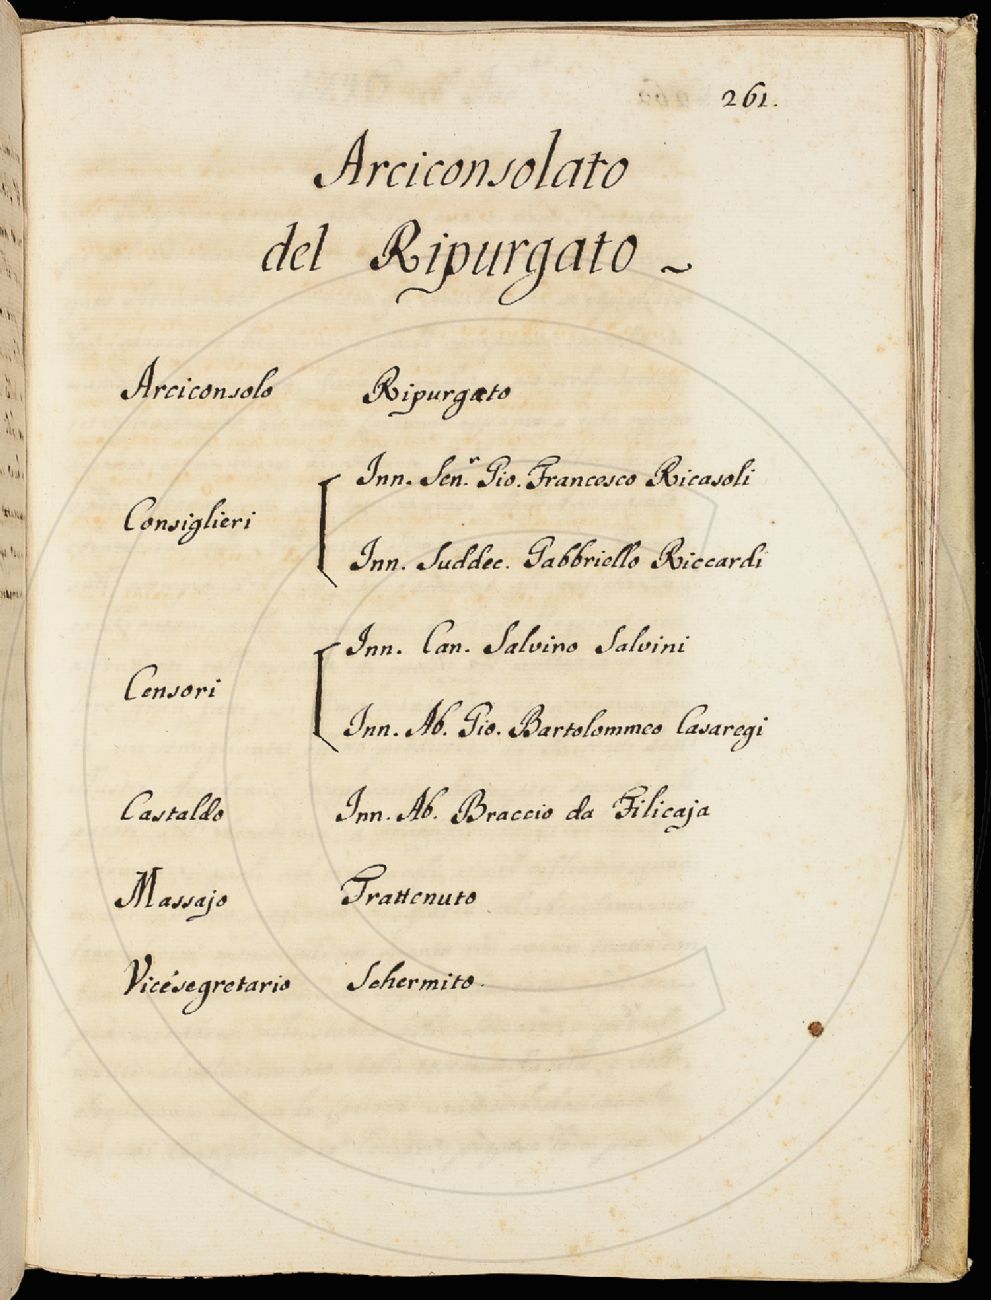 261.
Arciconsolato
del Ripurgato ~
Arciconsolo Ripurgato
Inn. Sen.r Gio. Francesco Ricasoli
Consiglieri
Inn. Suddec. Gabbriello Riccardi
Inn. Can. Salvino Salvini
Censori
Inn. Ab. Gio. Bartolommeo Casaregi
Castaldo Inn. Ab. Braccio da Filicaja
Massajo Trattenuto
Vicésegretario Schermito.